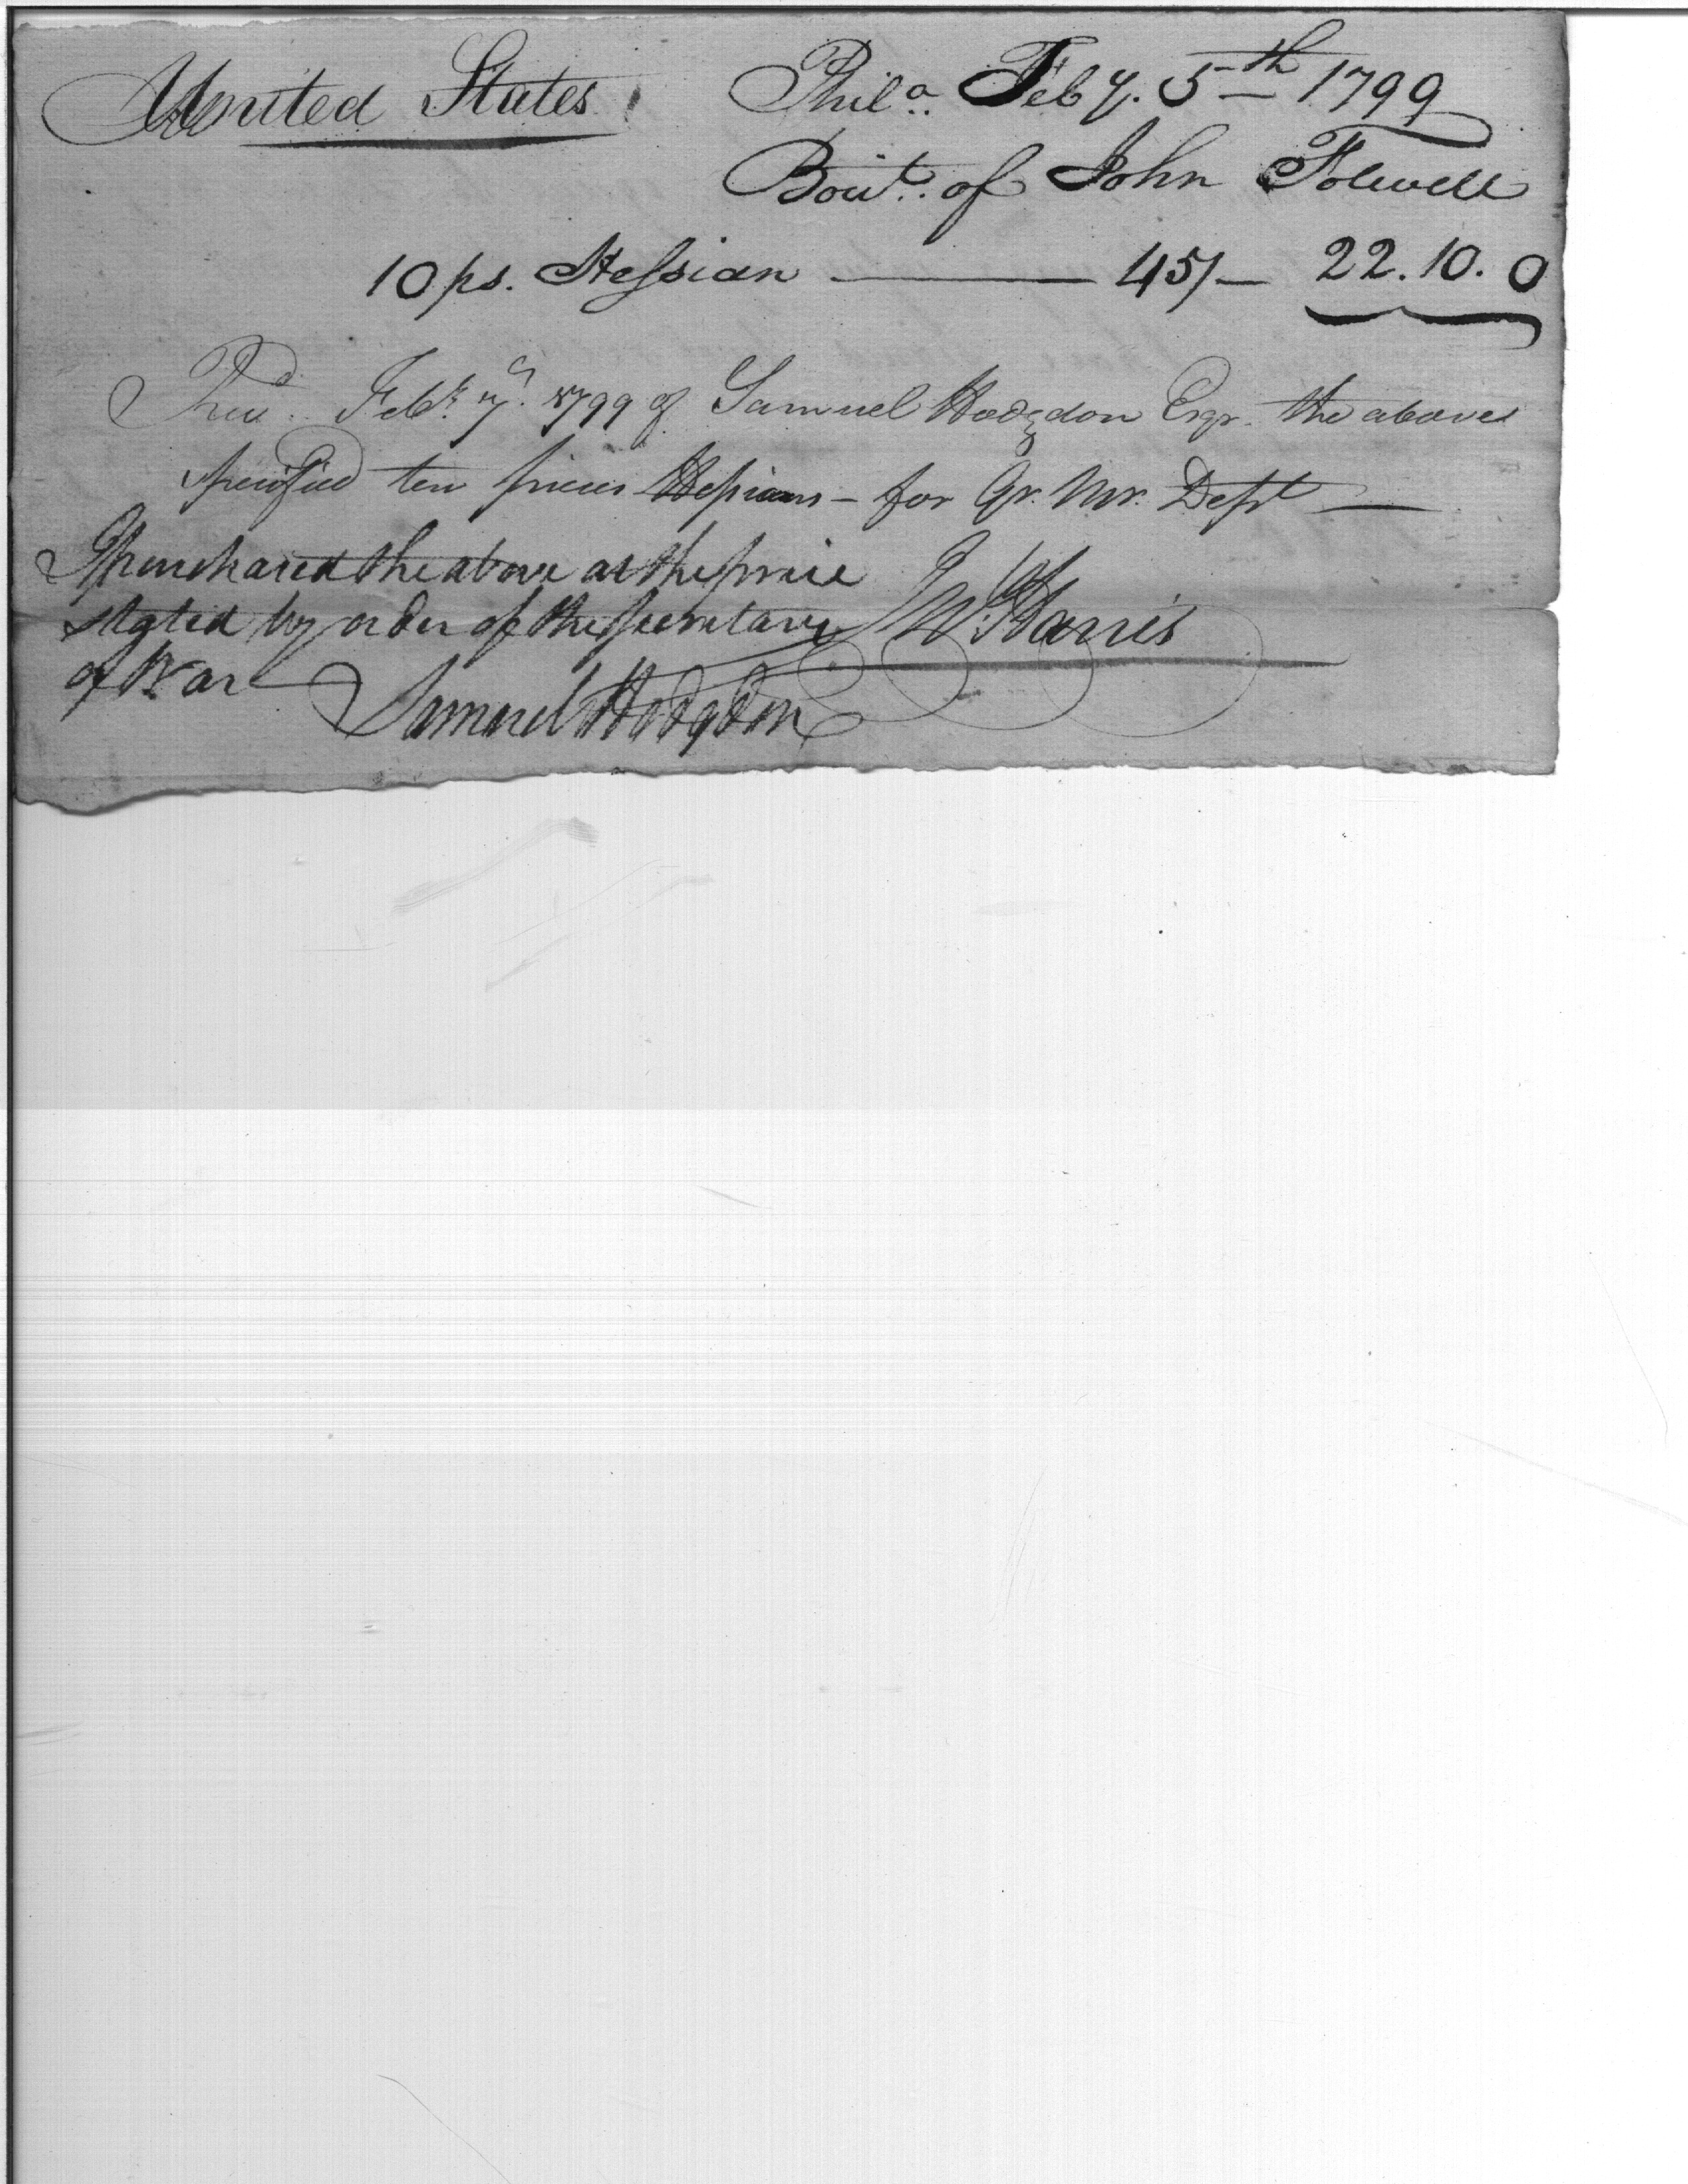 United States
Phila. Feby. 5th 1799
Bout. of John Folwell
10 ps. Hessian — 45/— 22.10.0
Recd. Feby. 7. 1799 of Samuel Hodgdon Esqr. the above
specified ten pieces Hessians — for Qr. Mr. Dept —
I purchased the above at the price
stated by order of the Secretary
of War
W. Harris
Samuel Hodgdon